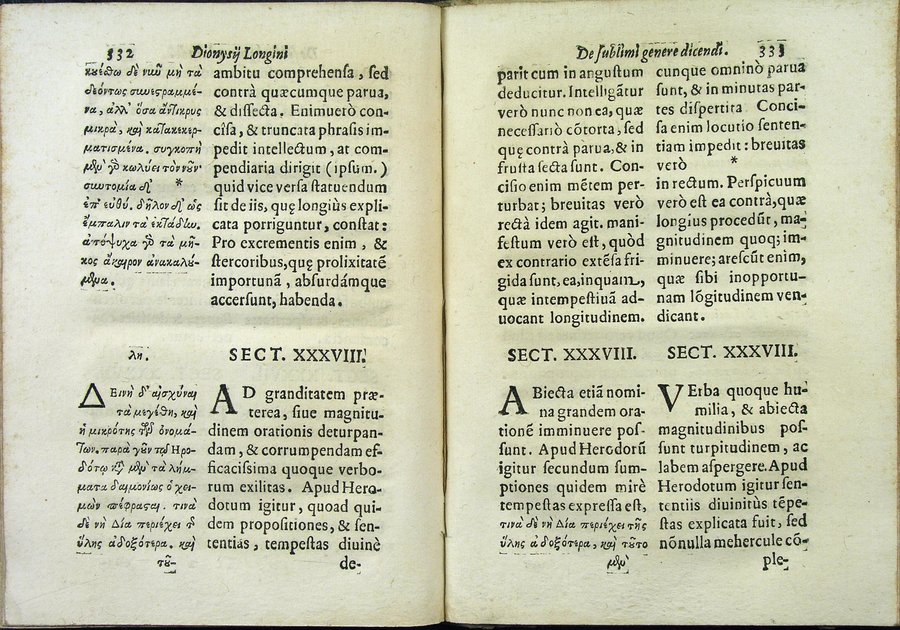 332 Dionysij Longini
δὲ νιῦ μὴ τὰ
δεόντως συνεστραμμέ-
να, ἀλλ' ὅσα ἄντικρυς
μικρὰ, καὶ κατακεκερ-
ματισμένα. συγκοπὴ
μὲν γὸ κωλύει τὸν νοῦν·
συντομία δ' *
ἐπ' εὐθύ. δῆλον δ' ὡς
ἔμπαλιν τὰ ἐκτάδην.
ἀπόψυχα γὸ τὰ μῆ-
κος ἄκαιρον ἀνακαλού-
μενα.
ambitu comprehensa, sed
contrà quæcumque parua,
& dissecta. Enimuerò con-
císa, & truncata phrasis im-
pedit intellectum, at com-
pendiaria dirigit (ipsum.)
quid vice versa statuendum
sit de iis, quę longiùs expli-
cata porriguntur, constat:
Pro excrementis enim, &
stercoribus, quę prolixitatē
importunā, absurdámque
accersunt, habenda.
λη.
ΔΕινὴ δ' αἰσχῦναι
τὰ μεγέθη, καὶ
ἡ μικρότης τῶν ὀνομά-
των. παρὰ γοῦν τῷ Ηρο-
δότῳ κατὰ μὲν τὰ λήμ-
ματα δαιμονίως ὁ χει-
μὼν πέφρασται. τινὰ
δὲ νὴ Δία περιέχει τῆς
ὕλης ἀδοξότερα. καὶ
τοῦ-
SECT. XXXVIII.
AD granditatem præ-
terea, siue magnitu-
dinem orationis deturpan-
dam, & corrumpendam ef-
ficacissima quoque verbo-
rum exilitas. Apud Hero-
dotum igitur, quoad qui-
dem propositiones, & sen-
tentias, tempestas diuinè
de-
De sublimi genere dicendi. 333
parit cum in angustum
deducitur. Intelligātur
verò nunc non ea, quæ
necessariò cōtorta, sed
quę contrà parua, & in
frusta secta sunt. Con-
cisio enim mētem per-
turbat; breuitas verò
rectà idem agit. mani-
festum verò est, quòd
ex contrario extēsa fri-
gida sunt, ea, inquam,
quæ intempestiuā ad-
uocant longitudinem.
cunque omninò parua
sunt, & in minutas par-
tes dispertita Conci-
sa enim locutio senten-
tiam impedit: breuitas
verò *
in rectum. Perspicuum
verò est ea contrà, quæ
longius procedūt, ma-
gnitudinem quoq; im-
minuere; arescūt enim,
quæ sibi inopportu-
nam lōgitudinem ven-
dicant.
SECT. XXXVIII.
ABiecta etiā nomi
na grandem ora-
tionē imminuere pos-
sunt. Apud Herodotū
igitur secundum sum-
ptiones quidem mirè
tempestas expressa est,
τινὰ δὲ νὴ Δία περιέχει τῆς
ὕλης ἀδοξότερα, καὶ τοῦτο
μὲν
SECT. XXXVIII.
VErba quoque hu-
milia, & abiecta
magnitudinibus pos-
sunt turpitudinem, ac
labem aspergere. Apud
Herodotum igitur sen-
tentiis diuinitùs tēpe-
stas explicata fuit, sed
nōnulla mehercule cō-
ple-